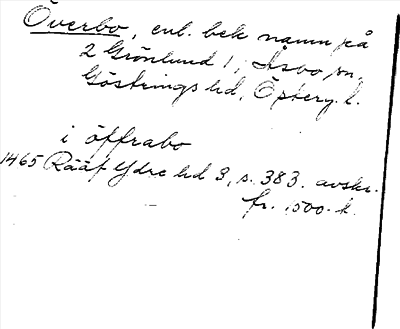 Överbo, enl. bek namn på
2 Grönlund 1, Åsbo sn,
Göstrings hd, Österg. l.
i öffrabo
1465 Rääf Ydre hd 3, s. 383. avskr.
fr. 1500-t.